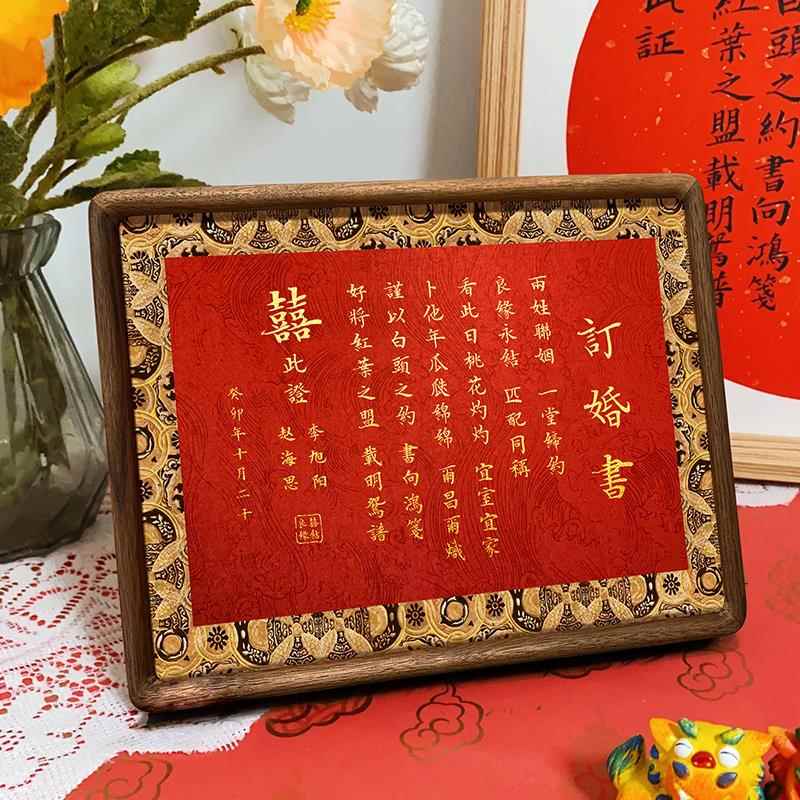 訂婚書
兩姓聯姻 一堂締約
良緣永結 匹配同稱
看此日桃花灼灼 宜室宜家
卜他年瓜瓞綿綿 爾昌爾熾
謹以白頭之約 書向鴻箋
好將紅葉之盟 載明鴛譜
囍此證
李旭阳
赵海思
癸卯年十月二十
白頭之約書向鴻箋
紅葉之盟載明
此証